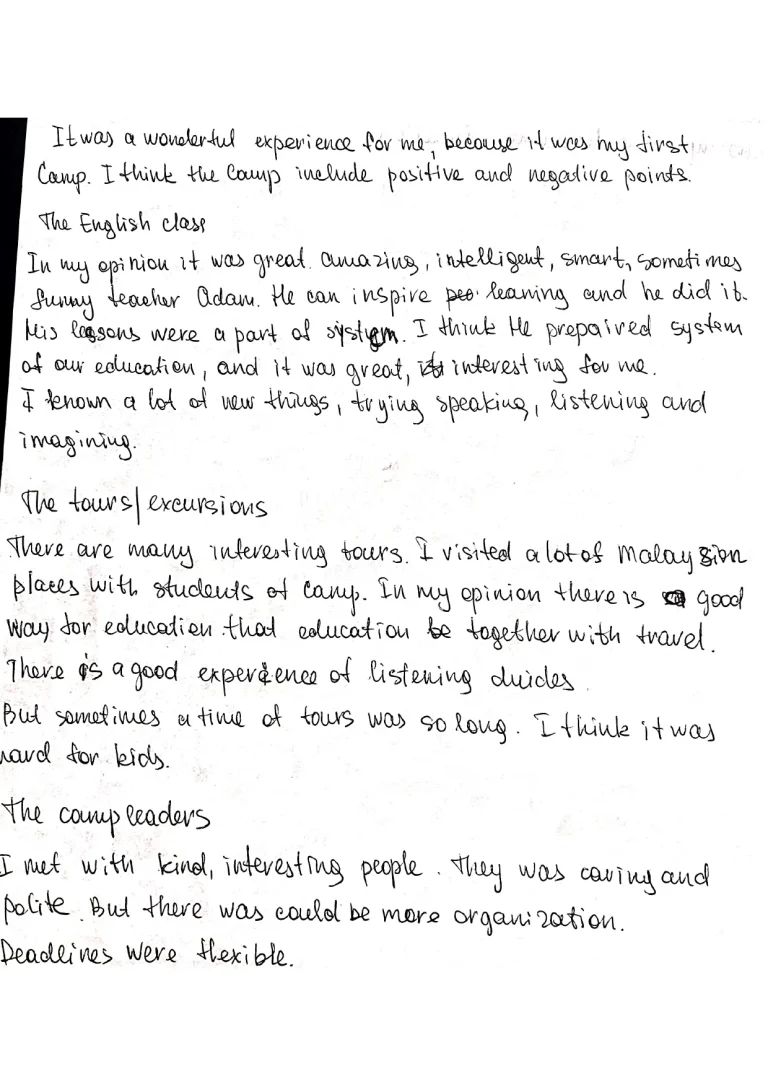 It was a wonderful experience for me, because it was my first
Camp. I think the Camp include positive and negative points.
The English class
In my opinion it was great. amazing, intelligent, smart, sometimes
funny teacher Adam. He can inspire leaning and he did it.
His lessons were a part of system. I think He prepaired system
of our education, and it was great, interesting for me.
I known a lot of new things, trying speaking, listening and
imagining.
The tours/excursions
There are many interesting tours. I visited a lot of Malaysian
places with students of camp. In my opinion there is good
way for education that education be together with travel.
There is a good experience of listening duides.
But sometimes a time of tours was so long. I think it was
hard for kids.
The camp leaders
I met with kind, interesting people. They was caring and
polite. But there was could be more organization.
Deadlines were flexible.